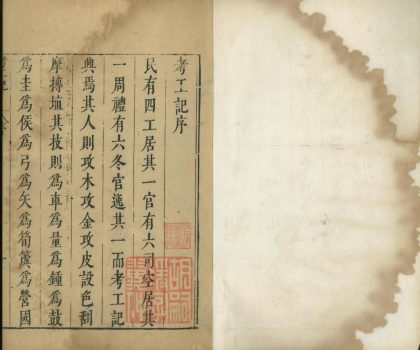 考工記序
民有四工居其一官有六司空居其
一周禮有六冬官逸其一而考工記
典焉其人則攻木攻金攻皮設色刮
摩摶埴其技則爲車爲量爲鍾爲鼓
爲圭爲侯爲弓爲矢爲筍簴爲營國